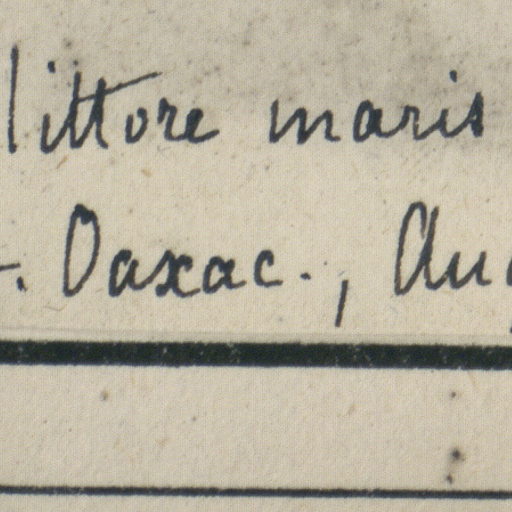 littore maris
. Oaxac.,